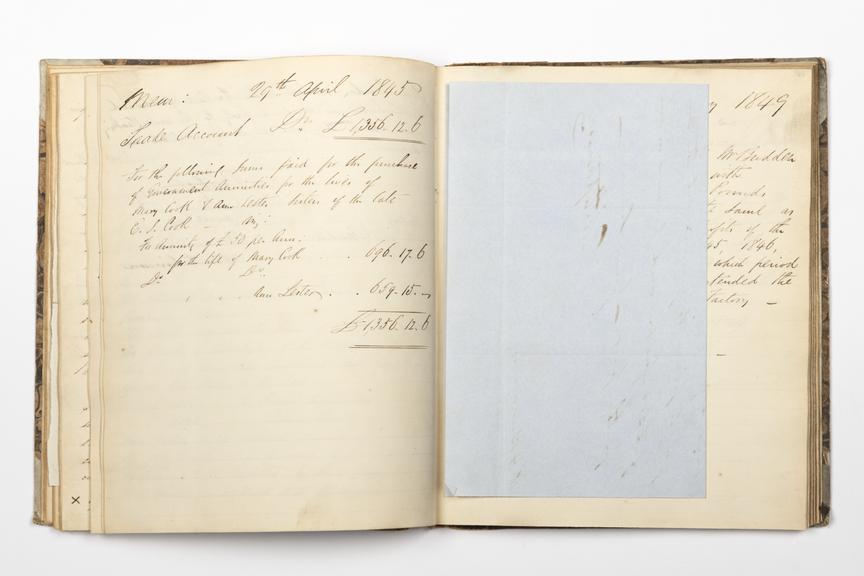 Mem: 29th April 1845
Trade Account Dr. £1,356.12.6
For the following Sums paid for the purchase
of Government Annuities for the lives of
Mary Cook & Ann Lester Sisters of the late
C. S. Cook — Viz:
For Annuity of £50 per Ann:
for the life of Mary Cook . . 696.17.6
Do Do
Ann Lester . . 659.15.–
£1356.12.6
1849
Mr Budden
with
Pounds
Saml as
of the
1846,
which period
the
Factory –
x